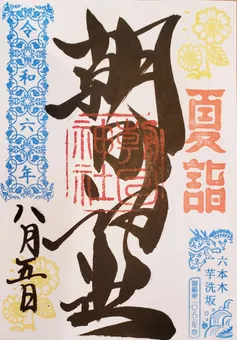 夏詣
六本木
芋洗坂
朝日神社
朝日
神社
令和六年
八月五日